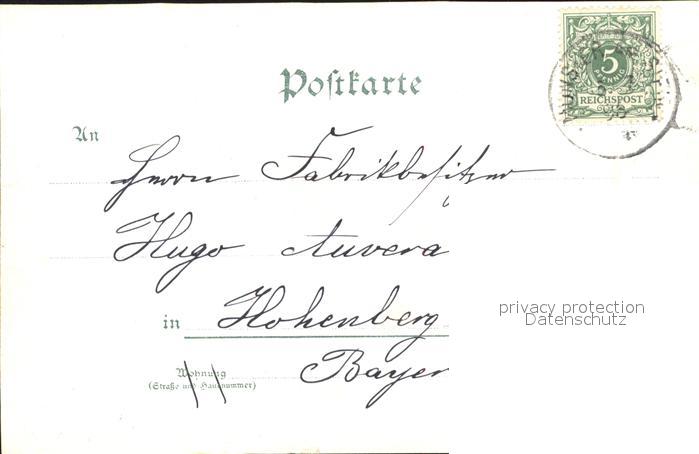 Postkarte
5
PFENNIG
REICHSPOST
An
Herrn Fabrikbesitzer
Hugo Auvera
in Hohenberg
privacy protection
Datenschutz
Bayer
Wohnung
(Straße und Hausnummer)